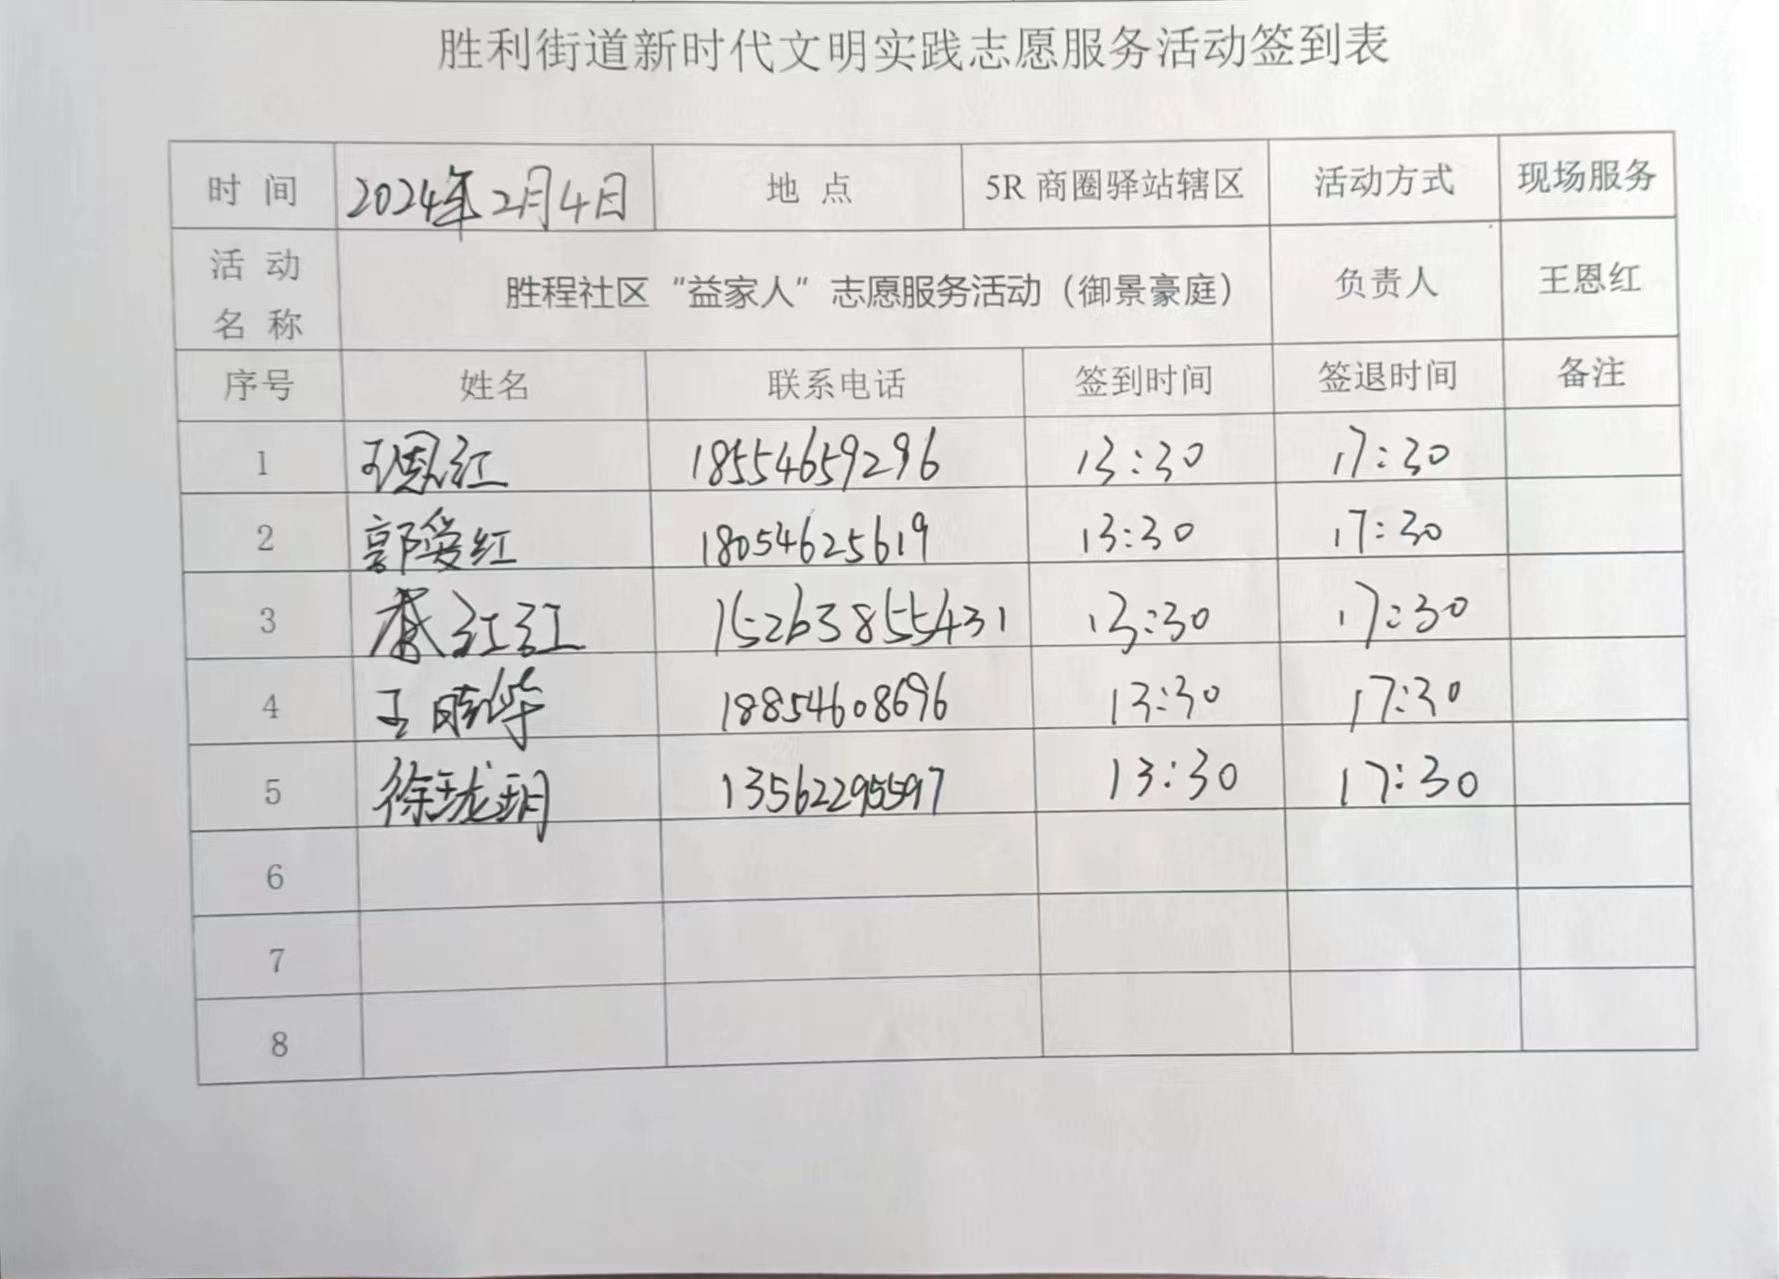 胜利街道新时代文明实践志愿服务活动签到表
时 间 2024年2月4日 地 点 5R 商圈驿站辖区 活动方式 现场服务
活 动 名 称 胜程社区“益家人”志愿服务活动（御景豪庭） 负责人 王恩红
序号 姓名 联系电话 签到时间 签退时间 备注
1 王恩红 18554659296 13:30 17:30
2 郭爱红 18054625619 13:30 17:30
3 红红 15263855431 13:30 17:30
4 王晓华 18854608696 13:30 17:30
5 徐珑玥 13562295597 13:30 17:30
6
7
8